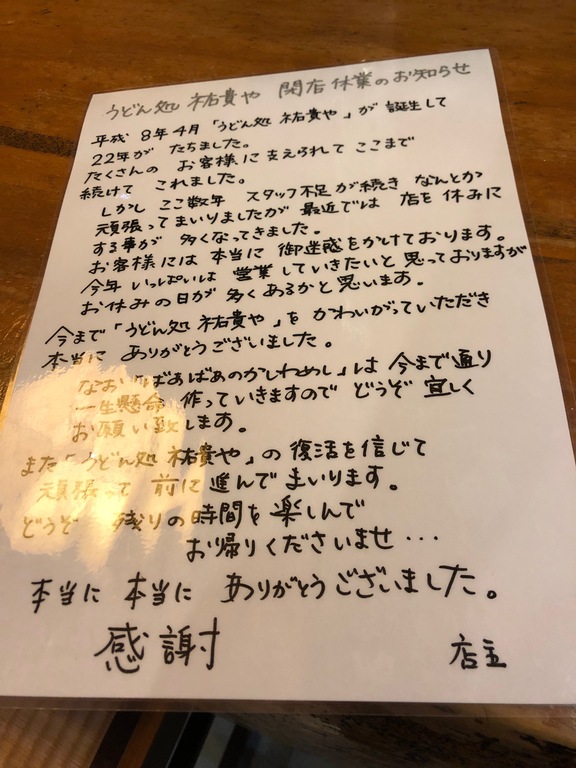 うどん処 祐貴や 閉店休業のお知らせ
平成 8年4月「うどん処 祐貴や」が 誕生して
22年が たちました。
たくさんの お客様に支えられて ここまで
続けて これました。
しかし ここ数年 スタッフ不足が続き なんとか
頑張ってまいりましたが 最近では 店を休みに
する事が 多くなってきました。
お客様には本当に 御迷惑をかけております。
今年いっぱいは 営業していきたいと思っておりますが
お休みの日が多くあるかと思います。
今まで「うどん処 祐貴や」を かわいがっていただき
本当に ありがとうございました。
なお「ばあばあのかしわめし」は今まで通り
一生懸命 作っていきますので どうぞ宜しく
お願い致します。
また「うどん処 祐貴や」の 復活を信じて
頑張って 前に進んでまいります。
どうぞ 残りの時間を楽しんで
お帰りくださいませ・・・
本当に 本当に ありがとうございました。
感謝 店主